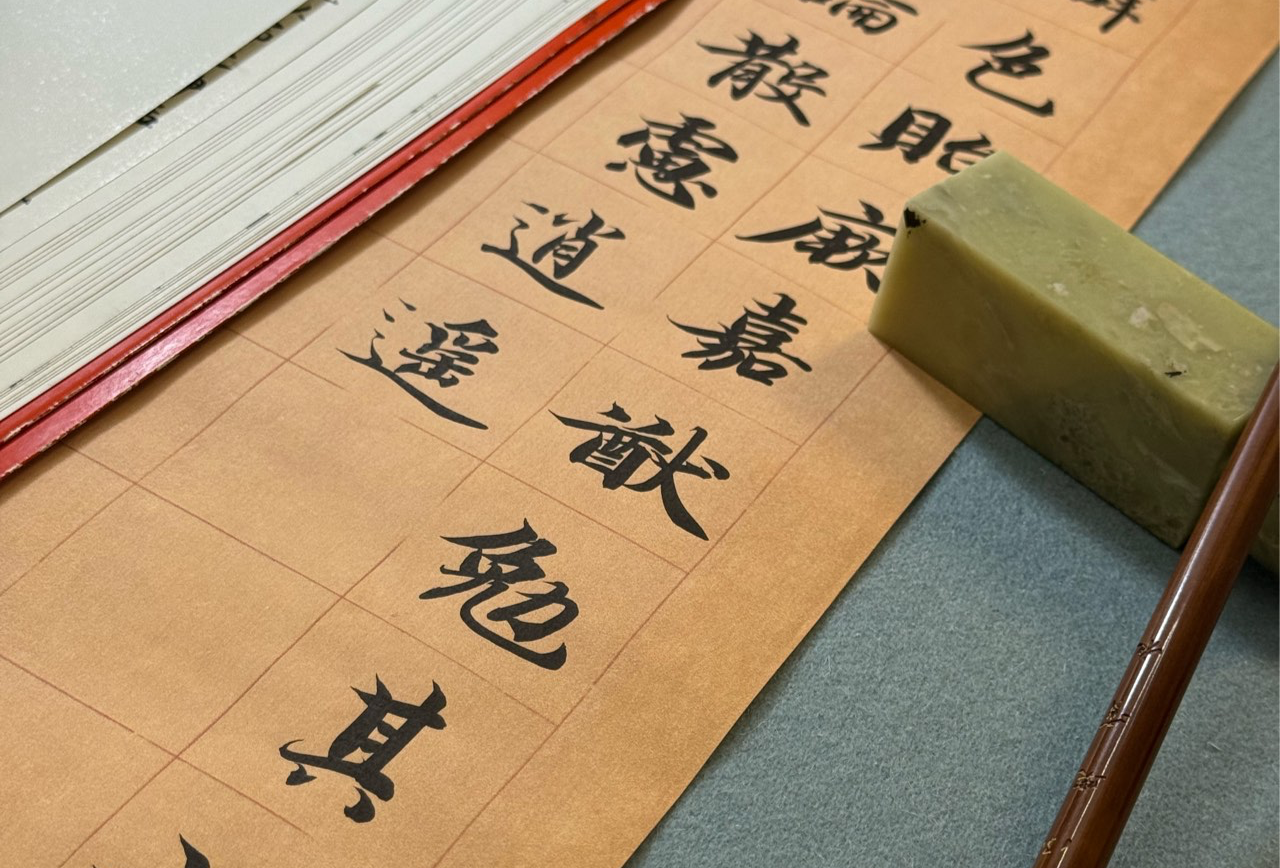 色貽厥嘉猷勉其
論散慮逍遥